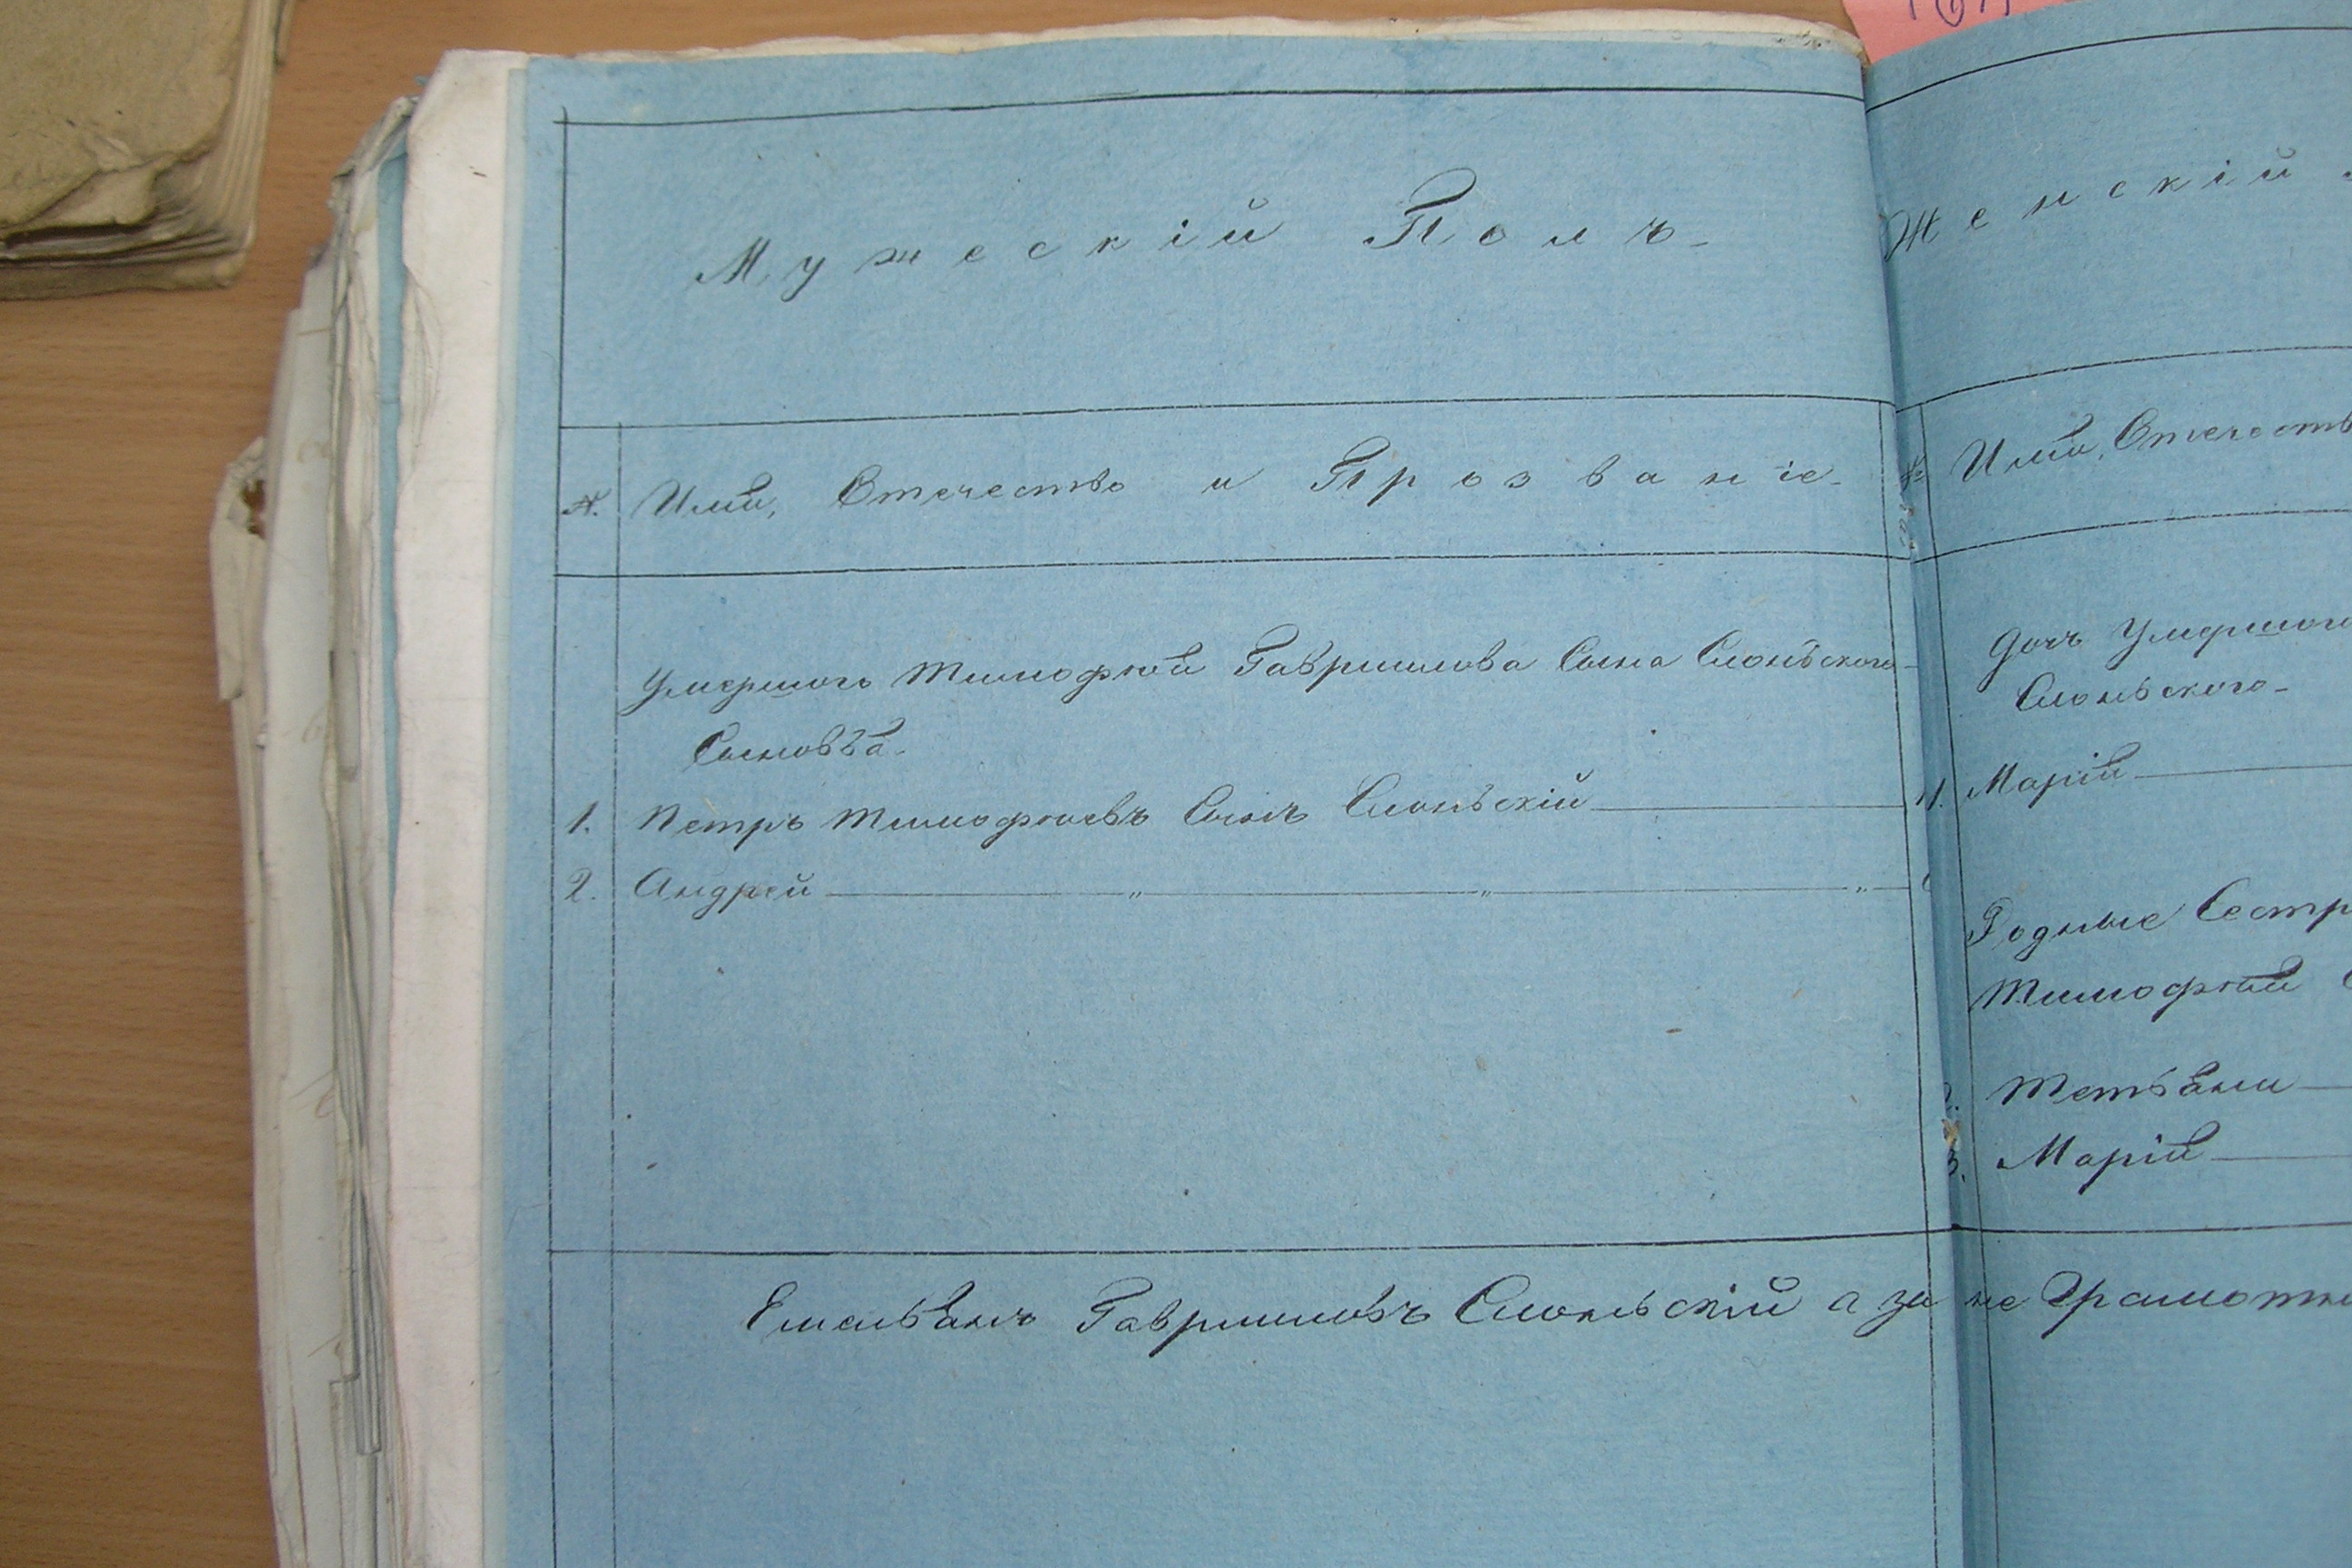 Мужескій Полъ
№ Имя, Отечество и Прозваніе
Умершого Тимофѣя Гавриилова Сына Смольского
Сыновья
1. Петръ Тимофѣевъ Сынъ Смольскій
2. Андрей — „ — „ — „
Емельянъ Гавриловъ Смольскій а за не Грамотн
Женскій
№ Имя, Отечеств
Дочь Умершого
Смольского
1. Марія
Родные Сестр
Тимофѣя
Татьяна
3. Марія